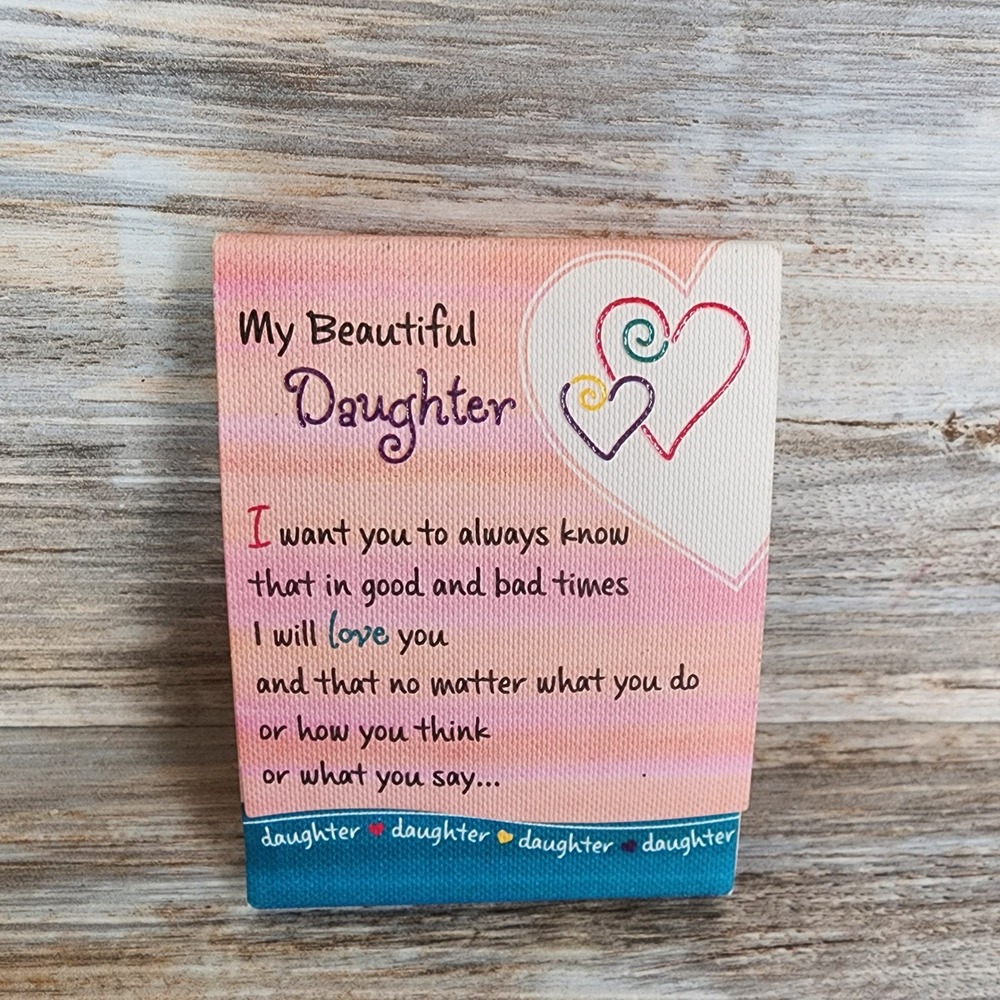 My Beautiful
Daughter
I want you to always know
that in good and bad times
I will love you
and that no matter what you do
or how you think
or what you say...
daughter daughter daughter daughter